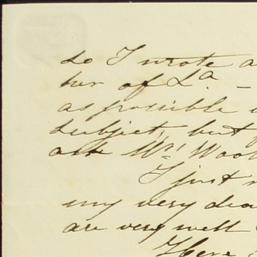 so I wrote a
her of La -
as possible
subject, but
ask Mr. Wool
I just
my very dea
are very well
Here